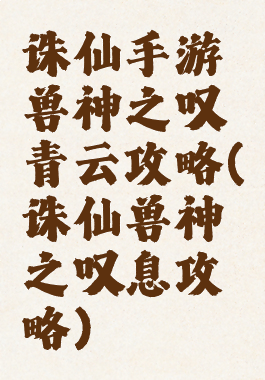 诛仙手游
兽神之叹
青云攻略(
诛仙兽神
之叹息攻
略)